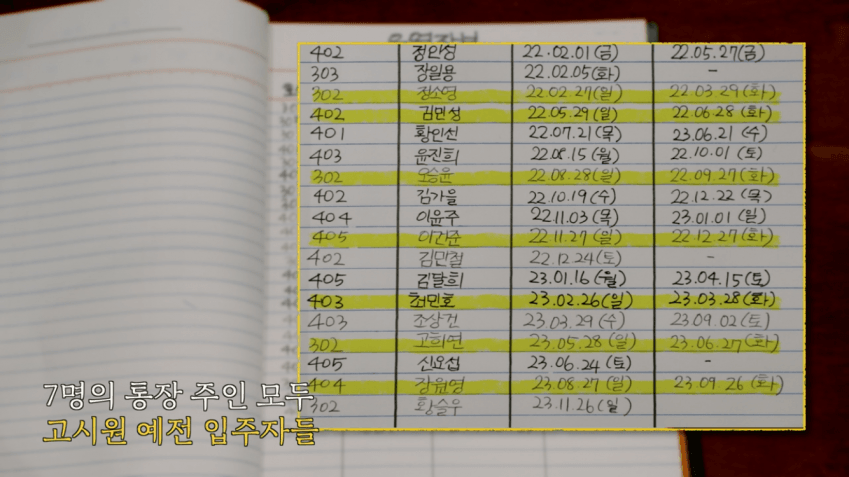 402 정인성 22.02.01(금) 22.05.27(금)
303 장일용 22.02.05(화) -
302 정소영 22.02.27(일) 22.03.29(화)
402 김민성 22.05.29(일) 22.06.28(화)
401 황인선 22.07.21(목) 23.06.21(수)
403 윤진희 22.08.15(월) 22.10.01(토)
302 오승윤 22.08.28(일) 22.09.27(화)
402 김가을 22.10.19(수) 22.12.22(목)
404 이윤주 22.11.03(목) 23.01.01(일)
405 이건준 22.11.27(일) 22.12.27(화)
402 김민철 22.12.24(토) -
405 김달희 23.01.16(월) 23.04.15(토)
403 최민호 23.02.26(일) 23.03.28(화)
403 조상건 23.03.29(수) 23.09.02(토)
302 고희연 23.05.28(일) 23.06.27(화)
405 신요섭 23.06.24(토) -
404 강원영 23.08.27(일) 23.09.26(화)
302 황슬우 23.11.26(일)
7명의 통장 주인 모두
고시원 예전 입주자들